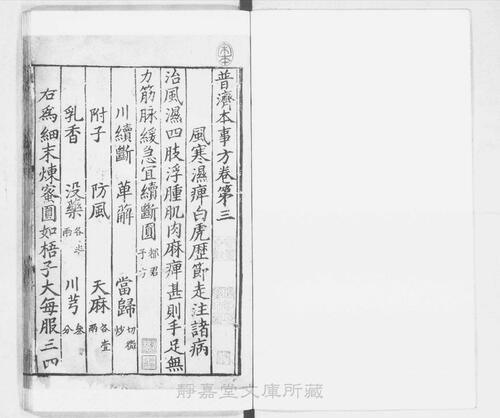 普濟本事方卷第三
風寒濕痺白虎歷節走注諸病
治風濕四肢浮腫肌肉麻痺甚則手足無
力筋脉緩急宜續斷圓 都君子方
川續斷 萆薢 當歸 切微炒
附子 防風 天麻 各壹兩
乳香 没藥 各半兩 川芎 叁分
右爲細末煉蜜圓如梧子大每服三四
靜嘉堂文庫所藏